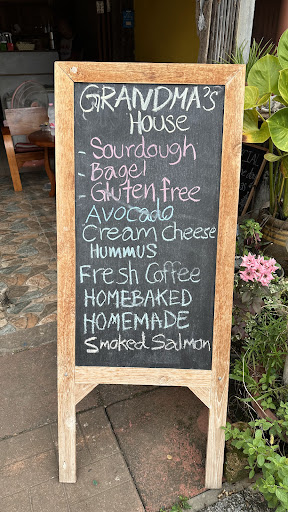 GRANDMA'S
House
- Sourdough
- Bagel
- Gluten free
Avocado
Cream Cheese
HUMMUS
Fresh Coffee
HOMEBAKED
HOMEMADE
Smoked Salmon